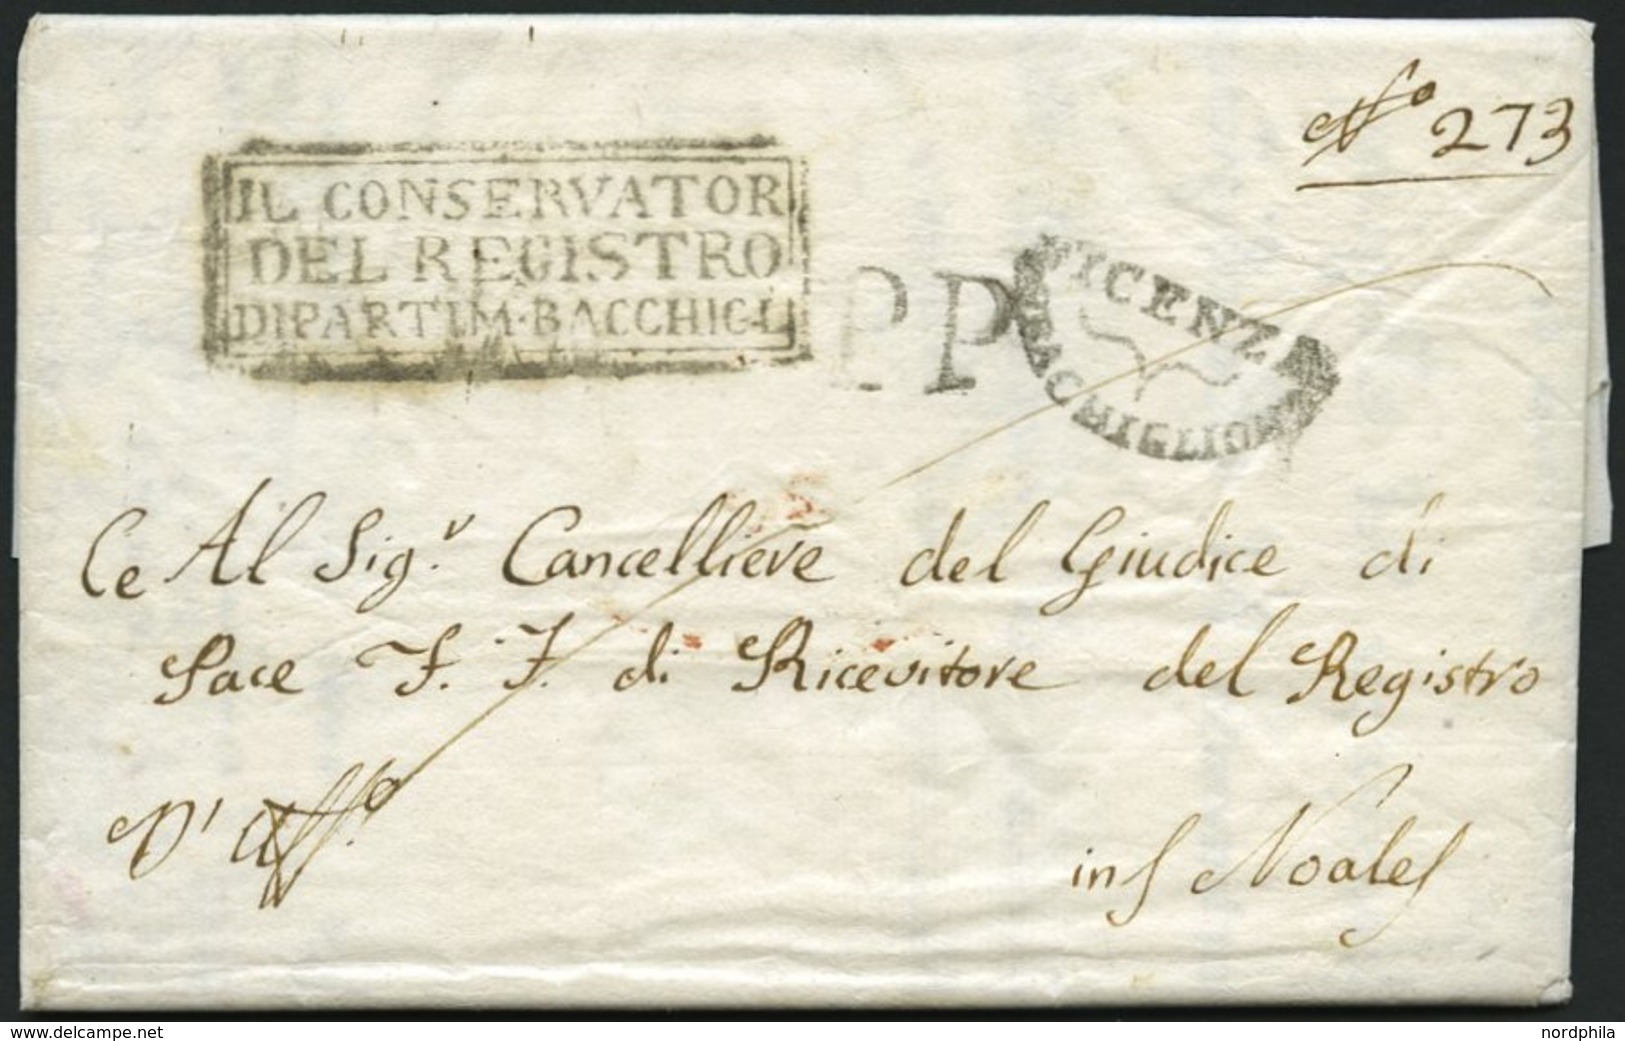 No 273
IL CONSERVATOR
DEL REGISTRO
DIPARTIM·BACCHIGL
PP
VICENZA
BACCHIGLIONE
Ce Al Sigr. Cancelliere del Giudice di
Pace F. F. di Ricevitore del Registro
D' Uffo.
in Noale
www.delcampe.net
nordphila